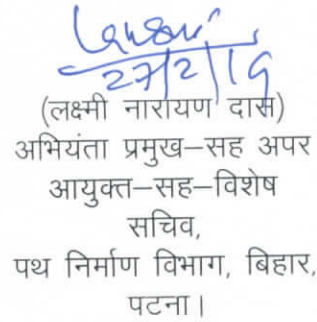 27/2/19
(लक्ष्मी नारायण दास)
अभियंता प्रमुख–सह अपर
आयुक्त–सह–विशेष
सचिव,
पथ निर्माण विभाग, बिहार,
पटना।